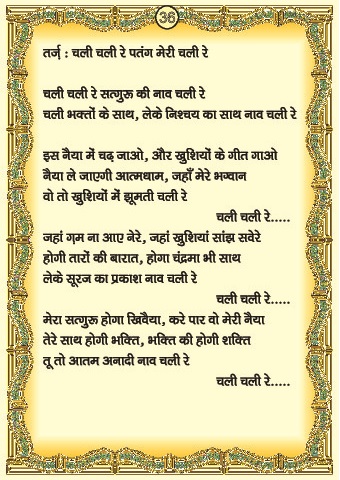 36
तर्ज़ : चली चली रे पतंग मेरी चली रे
चली चली रे सत्गुरू की नाव चली रे
चली भक्तों के साथ, लेके निश्चय का साथ नाव चली रे
इस नैया में चढ़ जाओ, और खुशियों के गीत गाओ
नैया ले जाएगी आत्मधाम, जहाँ मेरे भगवान
वो तो खुशियों में झूमती चली रे
चली चली रे.....
जहां ग़म ना आए नेरे, जहां खुशियां सांझ सवेरे
होगी तारों की बारात, होगा चंद्रमा भी साथ
लेके सूरज का प्रकाश नाव चली रे
चली चली रे.....
मेरा सत्गुरू होगा खिवैया, करे पार वो मेरी नैया
तेरे साथ होगी भक्ति, भक्ति की होगी शक्ति
तू तो आतम अनादी नाव चली रे
चली चली रे.....